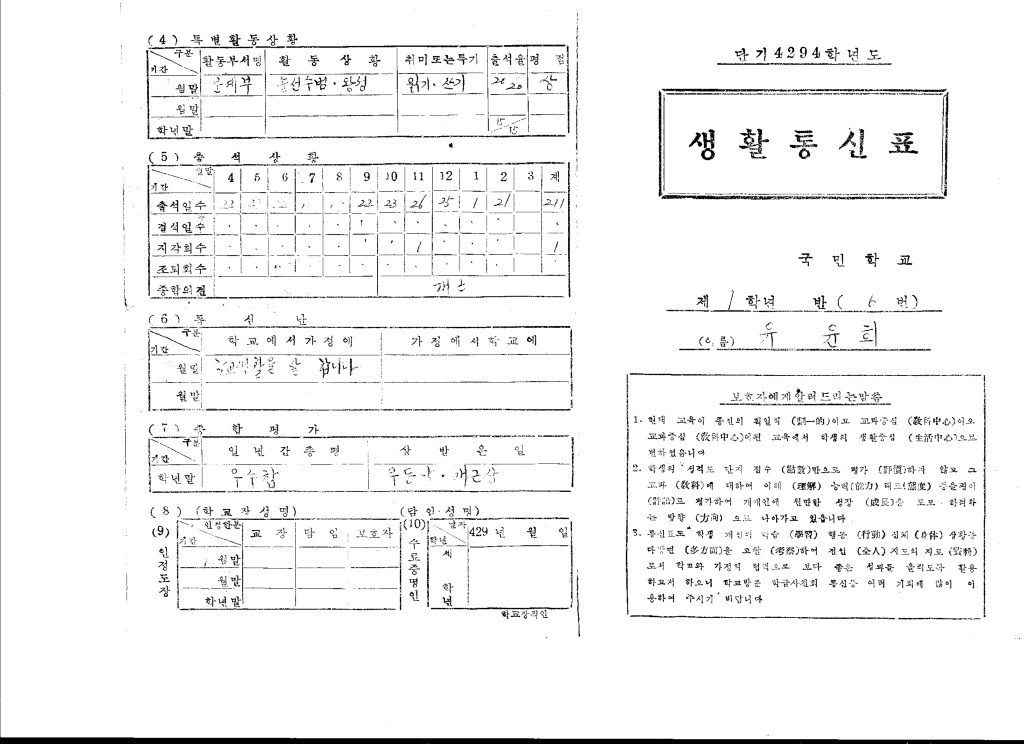 (4) 특별활동상황
구분
기간
활동부서명 활동상황 취미또는특기 출석율 평점
월말 솔선수범·왕성 읽기·쓰기 20/20 상
월말
학년말 15/15
(5) 출석상황
월말
기간
4 5 6 7 8 9 10 11 12 1 2 3 계
출석일수 22 23 26 25 1 21 211
결석일수
지각회수 1 1
조퇴회수
종합의견 개근
(6) 통신난
구분
기간
학교에서가정에 가정에서학교에
월말 잘 합니다
월말
(7) 종합평가
구분
기간
일년간총평 상받은일
학년말 우수함 우등상·개근상
(8) (학교장성명) (담임·성명)
(9) 인정도장
인정한분
기간
교장 담임 보호자
월말
월말
학년말
(10) 수료증명인
날자
학년
429 년 월 일
제
학년
학교장직인
단기4294학년도
생활통신표
국민학교
제 1학년 반( 6 번)
(이름) 유 윤 희
보호자에게알려드리는말씀
1. 현대 교육이 종전의 획일적 (劃一的)이고 교과중심 (敎科中心)이오
교과중심 (敎科中心)이던 교육에서 학생의 생활중심 (生活中心)으로
변하였읍니다
2. 학생의 성적도 단지 점수 (點數)만으로 평가 (評價)하지 않고 그
교과 (敎科)에 대하여 이해 (理解) 능력(能力) 태도(態度) 등을
로 평가하여 개개인에 원만한 성장 (成長)을 도모 하려하
는 방향 (方向) 으로 나아가고 있읍니다
3. 통신표도 학생 개인의 학습 (學習) 행동 (行動) 신체 (身体) 상황등
다방면 (多方面)을 고찰 (考察)하여 전인 (全人) 지도의 자료 (資料)
로서 학교와 가정의 협력으로 보다 좋은 성과를 올리도록 활용
하고저 하오니 학교방문 학급사친회 통신등 여러 기회에 많이 이
용하여 주시기 바랍니다